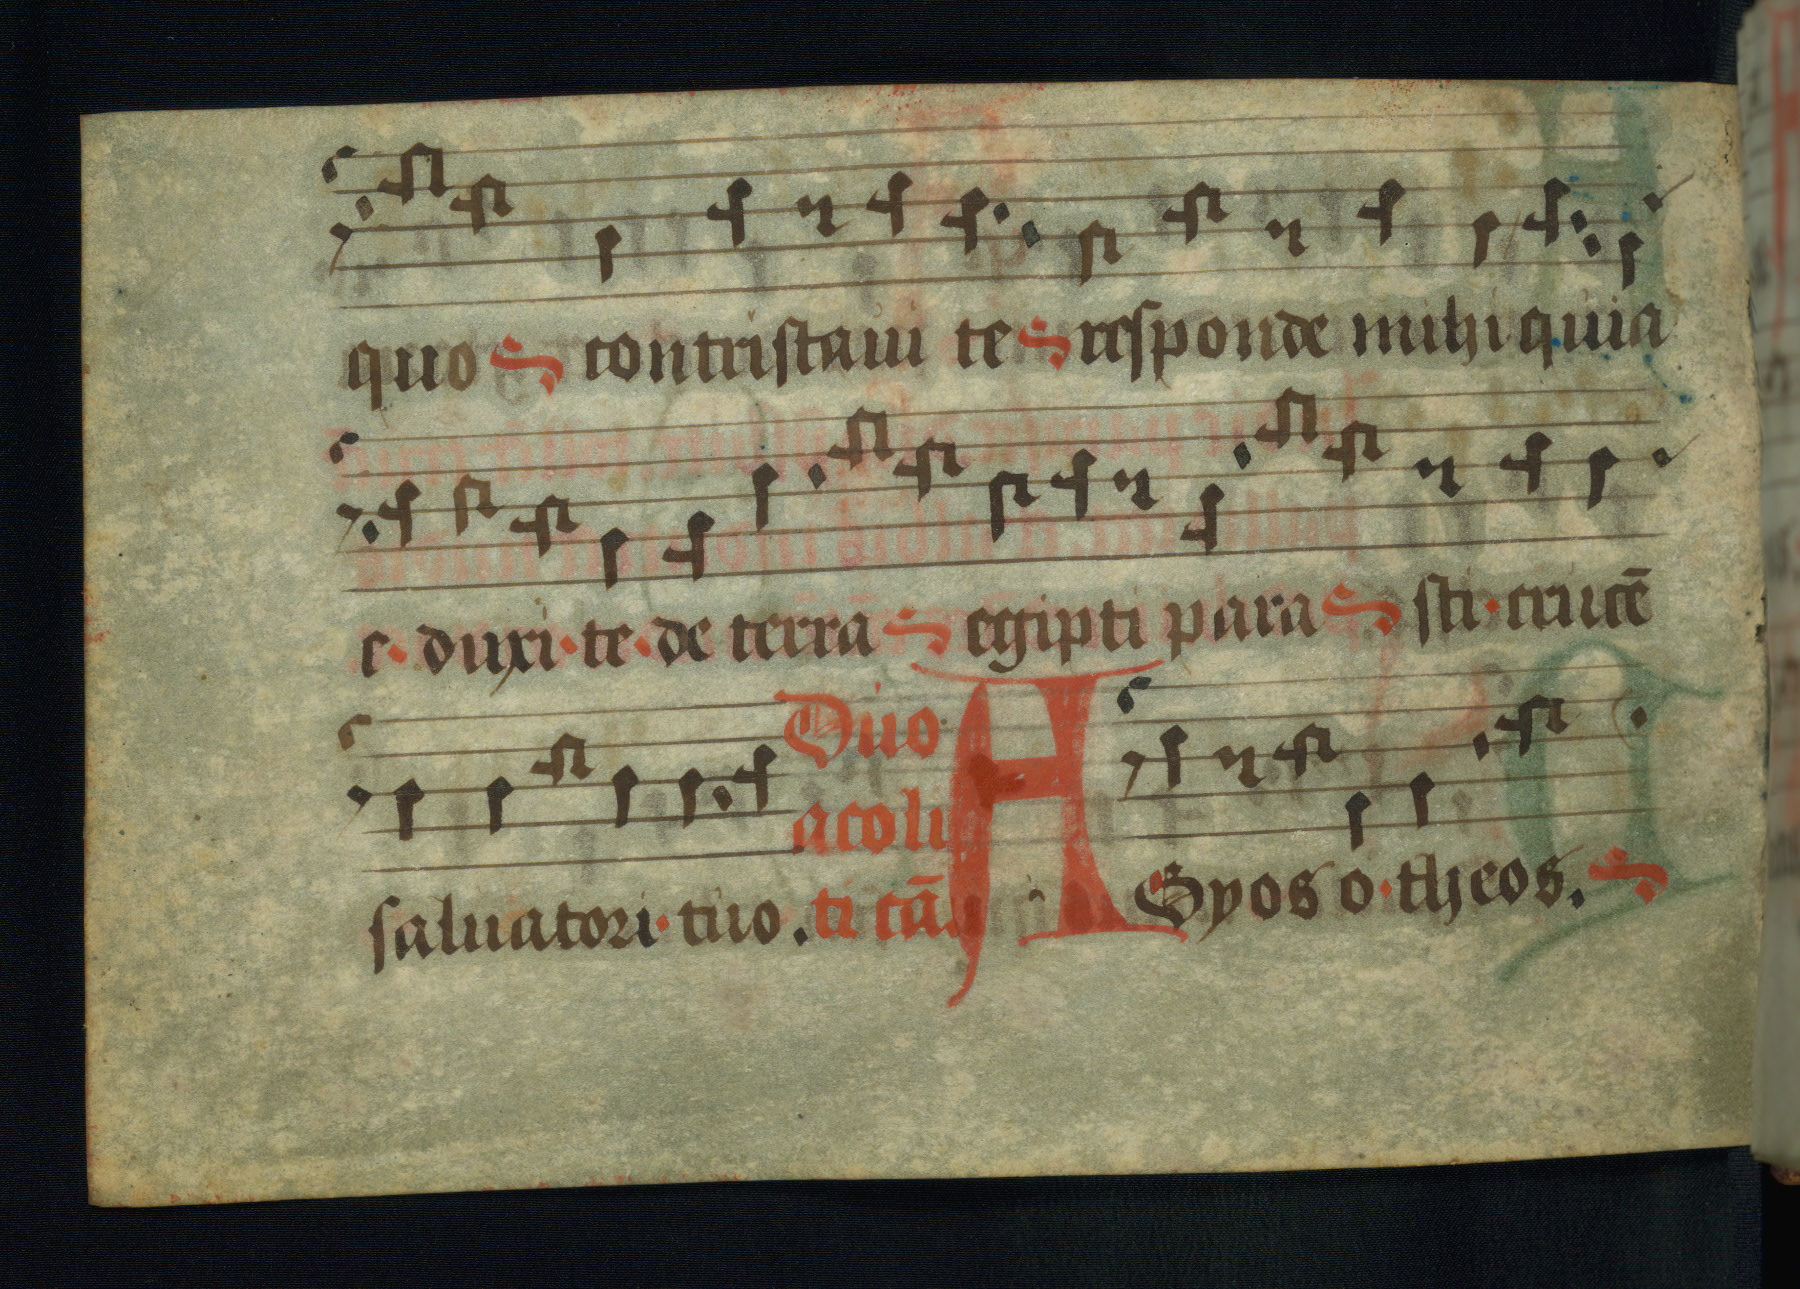 quo contristaui te responde mihi quia
e·duxi·te·de terra egipti para sti·crucē
saluatori·tuo.
Duo
acoli
ti cā.
AGyos o·theos.